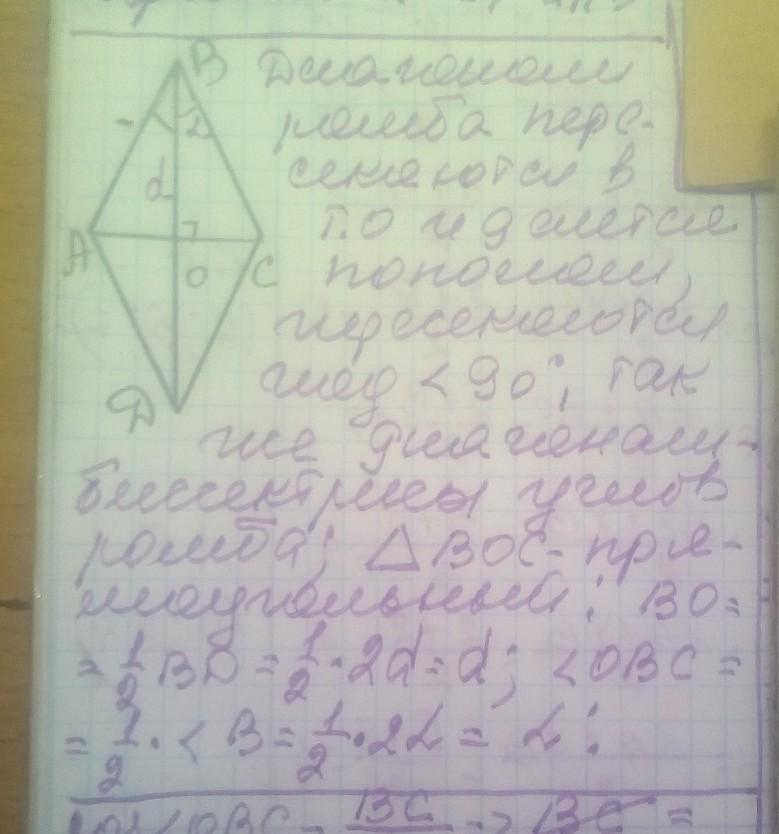 B Диагонали
ромба перс-
d 2
секаются в
т.О и делятся
A O C пополам,
пересекаются
под < 90°, так
D
же диагонали-
биссектрисы углов
ромба; △ BOC- пря-
моугольный: BO =
= 1/2 BD = 1/2 · 2d = d; < OBC =
= 1/2 · < B = 1/2 · 2L = L:
< OBC = BC => BC =